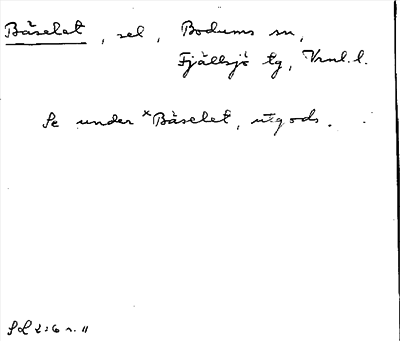 Båselet, sel, Bodums sn,
Fjällsjö tg, Vrnl. l.
Se under *Båselet, utgods.
SOL 2:6 n. 11